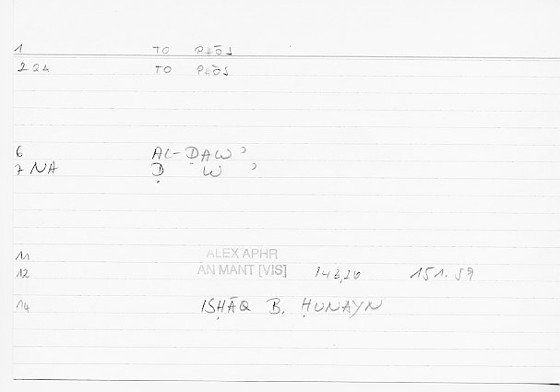 1 TO PHŌS
2 2A TO PHŌS
6 AL-ḌAWʾ
7 NA Ḍ W ʾ
11 ALEX APHR
12 AN MANT [VIS] 143,26 151.59
14 ISḤĀQ B. ḤUNAYN